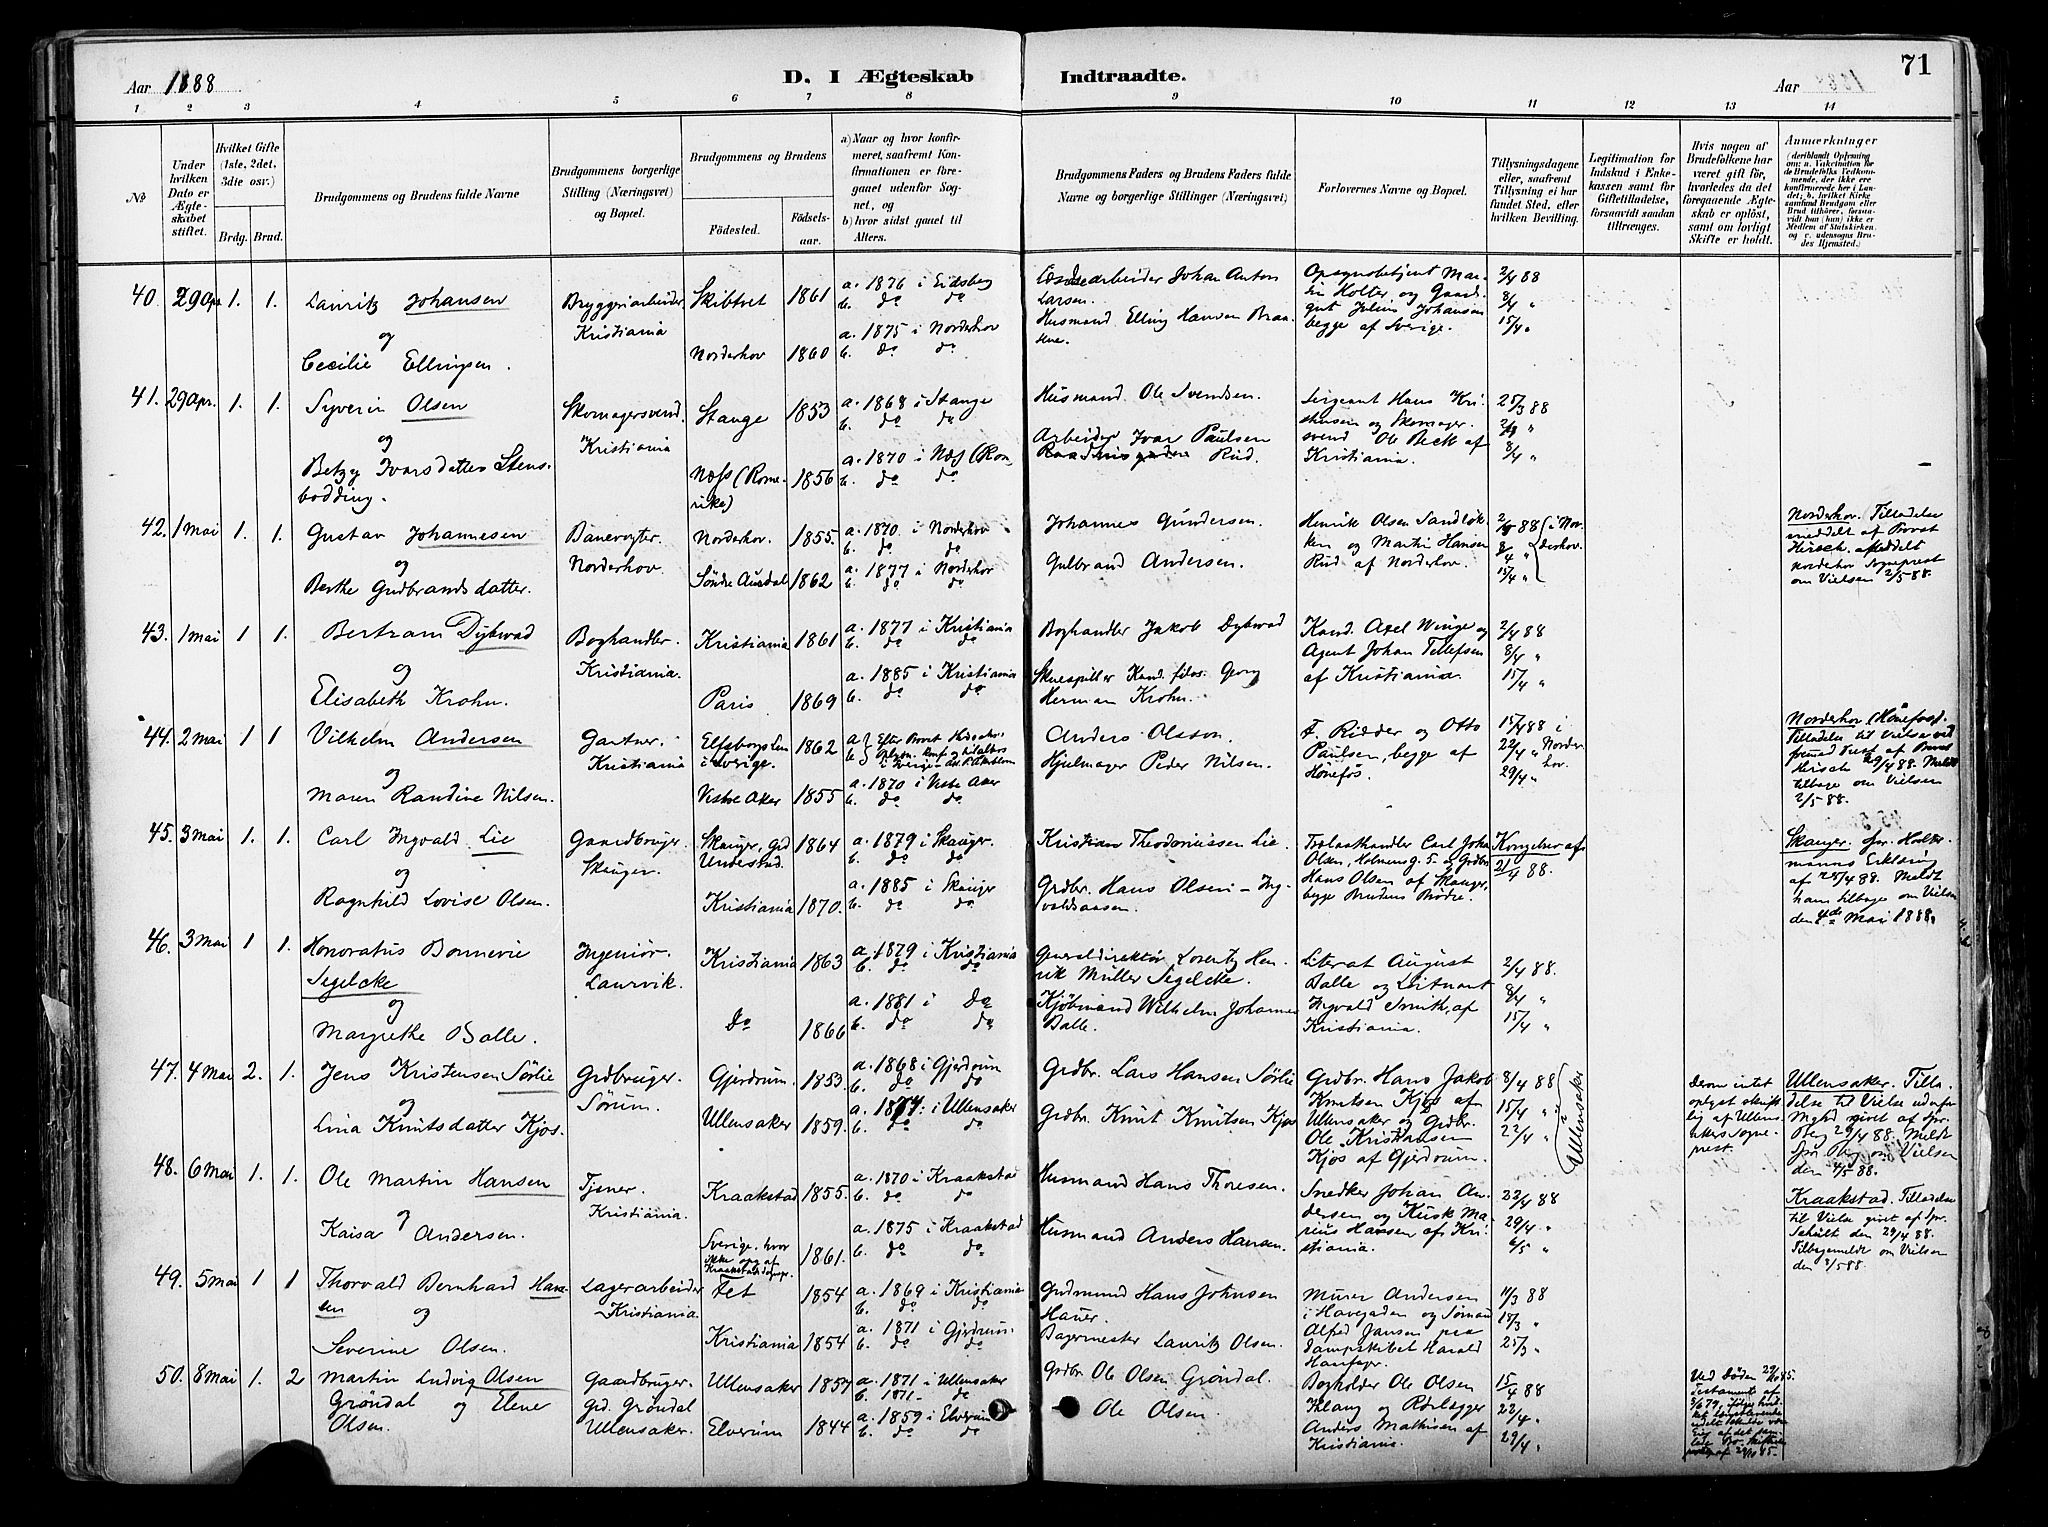 Aar 1888 D. I Ægteskab Indtraadte. Aar 71
1 2 3 4 5 6 7 8 9 10 11 12 13 14
№
Under hvilken Dato er Ægteskabet stiftet.
Hvilket Gifte (1ste, 2det, 3die osv.)
Brdg. Brud.
Brudgommens og Brudens fulde Navne
Brudgommens borgerlige Stilling (Næringsvei) og Bopæl.
Brudgommens og Brudens
Födested. Födselsaar.
a) Naar og hvor konfirmeret, saafremt Konfirmationen er foregaaet udenfor Sognet, og
b) hvor sidst gaaet til Alters.
Brudgommens Faders og Brudens Faders fulde Navne og borgerlige Stillinger (Næringsvei)
Forlovernes Navne og Bopæl.
Tillysningsdagene eller, saafremt Tillysning ei har fundet Sted, efter hvilken Bevilling.
Legitimation for Indskud i Enkekassen samt for Giftetilladelse, forsaavidt saadan tiltrænges.
Hvis nogen af Brudefolkene har været gift før, hvorledes da det foregaaende Ægteskab er opløst, samt om lovligt Skifte er holdt.
Anmærkninger
40. 29 Apr 1. 1. Lauritz Johansen
og
Cecilie Ellingsen.
Bryggeriarbeider
Kristiania
Skibtvet 1861
Norderhov 1860
a. 1876 i Eidsberg
b. do do
a. 1875 i Norderhov
b. do do
Johan Anton
Larsen.
Husmand Elling Hansen Braa-
Opsynsbetjent Mar-
tin Holter og Gaard-
gut Julius Johansen
begge af Sverige.
2/4 88
8/4 "
15/4 "
41. 29 Apr. 1. 1. Syverin Olsen
og
Betzy Ivarsdatter Stens-
bødding.
Skomagersvend
Kristiania
Stange 1853
Næss (Rome-
rike) 1856
a. 1868 i Stange
b. do do
a. 1870 i Næs (Rom.
b. do do
Husmand Ole Svendsen.
Arbeider Ivar Paulsen
Rud.
Sergeant Hans Kri-
stensen og Skomager-
svend Ole Beck af
Kristiania.
25/3 88
2/4 "
8/4 "
42. 1 Mai 1. 1. Gustav Johannesen
og
Berthe Gudbrandsdatter.
Banevogter.
Norderhov.
Norderhov. 1855.
Söndre Aurdal 1862
a. 1870. i Norderhov
b. do do
a. 1877 i Norderhov
b. do do
Johannes Gundersen.
Gulbrand Andersen.
Henrik Olsen Sandløk-
ken og Martin Hansen
Rud af Norderhov.
2/4 88 i Nor-
8/4 " derhov.
15/4 "
Norderhov. Tilladelse
meddelt af Provst
Hirsch. Meddelt
Norderhov Sogneprest
om Vielsen 2/5 88.
43. 1 Mai 1 1. Bertram Dybwad
og
Elisabeth Krohn.
Boghandler.
Kristiania.
Kristiania 1861
Paris 1869
a. 1877 i Kristiania
b. do do
a. 1885 i Kristiania
b. do do
Boghandler Jakob Dybwad
Skuespiller Kand. filos. Georg
Herman Krohn.
Kand. Axel Winge og
Agent Johan Tellefsen
af Kristiania.
2/4 88
8/4 "
15/4 "
44. 2 Mai 1 1 Vilhelm Andersen
og
Maren Randine Nilsen.
Gartner.
Kristiania
Elfsborgs Len
i Sverige. 1862
Vestre Aker 1855
a. 1870 i Vestre Aker
b. do do
Anders Olsson.
Hjulmager Peder Nilsen.
F. Ridder og Otto
Paulsen, begge af
Hönefös.
15/4 88 i
22/4 " Norder-
29/4 " hov.
Norderhov (Hönefos).
Tilladelse til Vielse ved
fremmed Prest af Provst
Hirsch 29/4 88. Meldt
tilbage om Vielsen
2/5 88.
45. 3 Mai 1. 1. Carl Ingvald Lie
og
Ragnhild Lovise Olsen.
Gaardbruger
Skauger.
Skauger, Grd
Undestad. 1864
Kristiania 1870.
a. 1879 i Skauger.
b. do do
a. 1885 i Skauger
b. do do
Kristian Theodoriussen Lie
Grdbr. Hans Olsen - Ing-
valdsaasen.
Trælasthandler Carl Joh.
Olsen, Holmens g. 5 og Grdbr.
Hans Olsen af Skauger,
begge Brudens Brödre.
Kongebrev af
21/4 88.
Skauger. Spr. Holter-
manns Erklæring
af 25/4 88. Meldt
ham tilbage om Vielsen
den 4de Mai 1888.
46. 3 Mai 1 1. Honoratus Bonnevie
Segelcke
og
Margrethe Balle.
Ingeniör.
Laurvik.
Kristiania 1863
Do 1866
a. 1879 i Kristiania
b. do do
a. 1881 i do
b. do do
Generaldirektör Lorentz Hen-
rik Müller Segelcke.
Kjöbmand Wilhelm Johannes
Balle.
Literat August
Balle og Löitnant
Ingvald Smith, af
Kristiania.
2/4 88.
8/4 "
15/4 "
47. 4 Mai 2. 1. Jens Kristensen Sörlie
og
Lina Knutsdatter Kjos.
Grdbruger.
Sörum.
Gjerdrum. 1853.
Ullensaker 1859.
a. 1868 i Gjerdrum
b. do do
a. 1874: i Ullensaker
b. do do
Grdbr. Lars Hansen Sörlie
Grdbr. Knut Knutsen Kjos
Grdbr. Hans Jakob
Knutsen Kjos af
Ullensaker og Grdbr.
Ole Kristiansen
Kjos af Gjerdrum.
8/4 88
15/4 "
22/4 "
i Ullensaker
Derom intet
oplyst skrift-
lig af Ullen-
sakers Sogne-
prest.
Ullensaker. Tilla-
delse til Vielse udenfor
Mghd givet af Spr.
Berg 29/4 88. Meldt
Spr Berg om Vielsen
den 4/5 88.
48. 6 Mai 1. 1. Ole Martin Hansen
og
Kaisa Andersen.
Tjener.
Kristiania.
Kraakstad 1855.
Sverige, hvor
ikke opg af
Kraakstads Sognepr. 1861.
a. 1870 i Kraakstad
b. do do
a. 1875 i Kraakstad
b. do do
Husmand Hans Thoresen.
Husmand Anders Hansen.
Snedker Johan An-
dersen og Kusk Ma-
rius Hansen af Kri-
stiania.
22/4 88
29/4 "
6/5 "
Kraakstad. Tilladelse
til Vielse givet af Spr.
Schült den 29/4 88.
Tilbagemeldt om Vielsen
den 8/5 88.
49. 5 Mai 1 1 Thorvald Bernhard Han-
sen og
Severine Olsen.
Lagerarbeider
Kristiania
Fet 1854
Kristiania 1854
a. 1869 i Kristiania
b. do do
a. 1871 i Gjerdrum.
b. do do
Grdmand Hans Johnsen
Hauer.
Bagermester Lauritz Olsen.
Murer Andersen
i Havegaden og Sömand
Alfred Jansen paa
Dampskibet Harald
Haarfagr.
11/3 88
18/3 "
25/3 "
50. 8 Mai 1. 2 Martin Ludvig Olsen
Gröndal og Elene
Olsen.
Gaardbruger.
grd. Gröndal
Ullensaker.
Ullensaker 1857
Elverum 1844
a. 1871 i Ullensaker
b. 1871 - do
a. 1859 i Elverum
b. do do
Grdbr Ole Olsen Gröndal.
Ole Olsen.
Bogholder Ole Olsen
Klang og Rörlægger
Anders Mathisen af
Kristiania.
15/4 88
22/4 "
29/4 "
Ved Döden
Testamente af